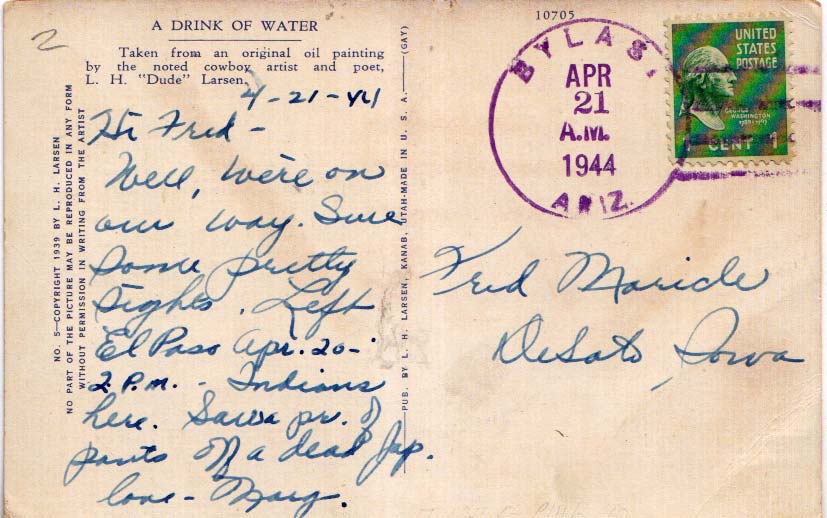 2
A DRINK OF WATER
Taken from an original oil painting
by the noted cowboy artist and poet,
L. H. "Dude" Larsen.
4-21-44
Hi Fred -
Well, we're on
our way. Sure
some pretty
sights. Left
El Paso Apr. 20-
2 P.M. - Indians
here. Saw a pr. of
pants off a dead Jap.
love - Marg.
NO. 5—COPYRIGHT 1939 BY L. H. LARSEN
NO PART OF THE PICTURE MAY BE REPRODUCED IN ANY FORM
WITHOUT PERMISSION IN WRITING FROM THE ARTIST
PUB. BY L. H. LARSEN, KANAB, UTAH-MADE IN U. S. A.—(GAY)
10705
BYLAS
APR
21
A.M.
1944
ARIZ.
UNITED
STATES
POSTAGE
GEORGE
WASHINGTON
1789-1797
CENT 1
Fred Maricle
DeSoto, Iowa